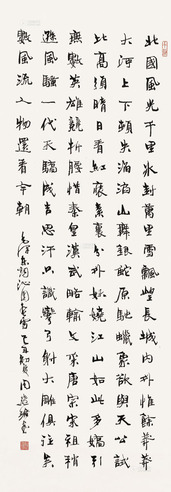 北國風光千里冰封萬里雪飄望長城內外惟餘莽莽
大河上下頓失滔滔山舞銀蛇原馳蠟象欲與天公試
比高須晴日看紅裝素裹分外妖嬈江山如此多嬌引
無數英雄競折腰惜秦皇漢武略輸文采唐宗宋祖稍
遜風騷一代天驕成吉思汗只識彎弓射大雕俱往矣
數風流人物還看今朝
毛澤東詞沁園春雪